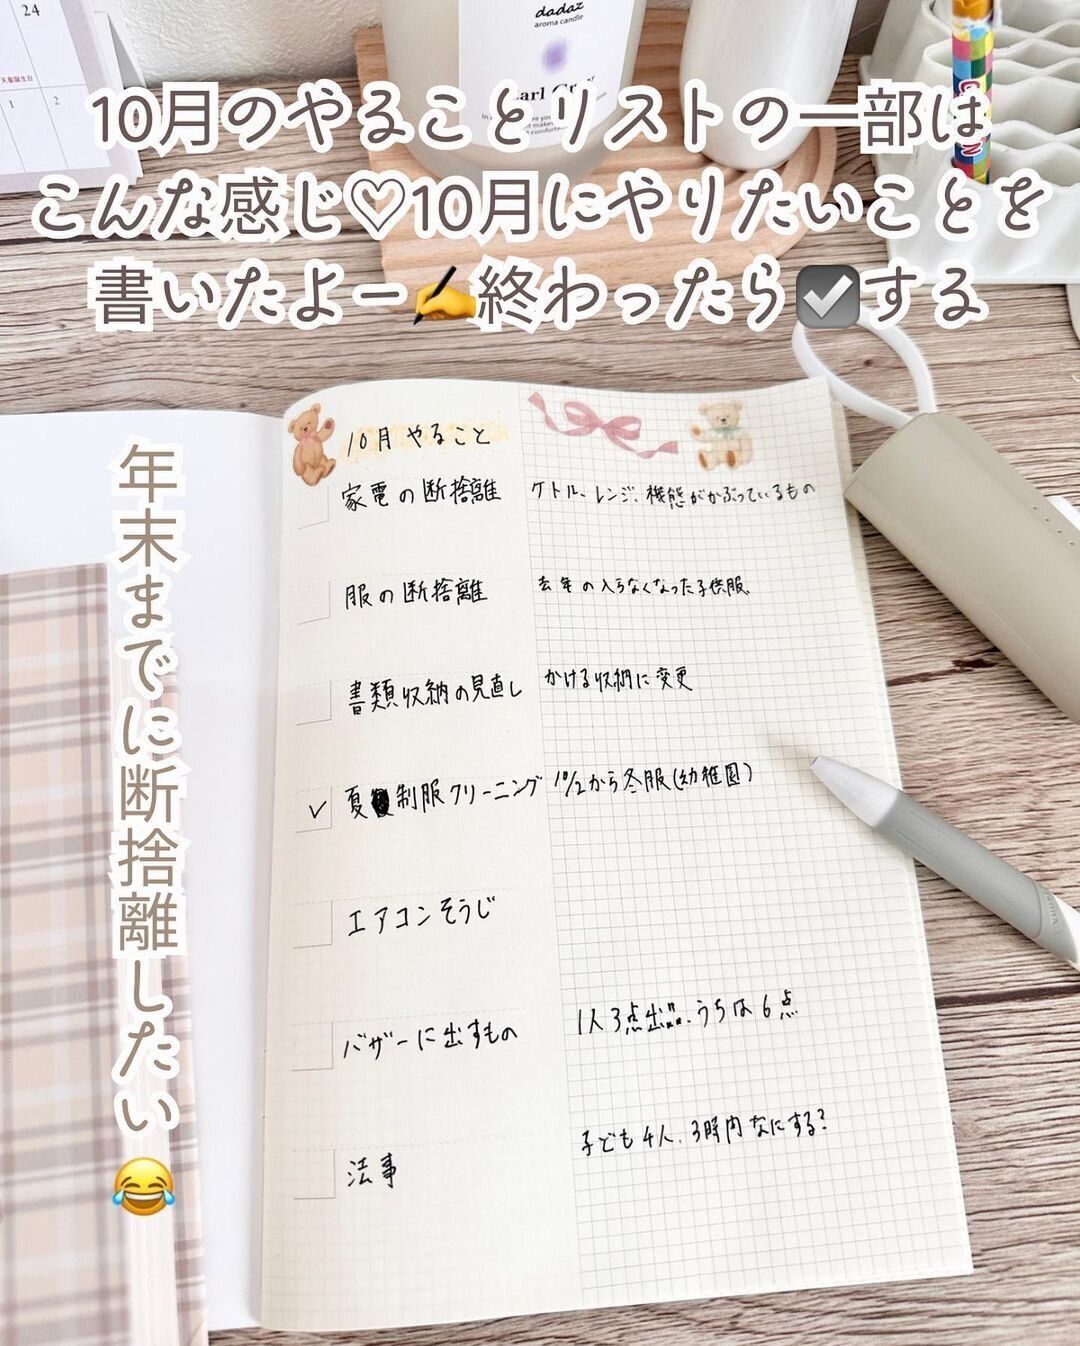 24
天皇誕生日
1 2
dadaz
aroma candle
10月のやることリストの一部は
こんな感じ♡10月にやりたいことを
書いたよー✍終わったら☑する
年末までに断捨離したい😂
10月 やること
家電の断捨離 ケトル、レンジ、機能がかぶっているもの
服の断捨離 去年の入らなくなった子供服
書類収納の見直し かける収納に変更
✓ 夏 制服クリーニング 10/2から冬服(幼稚園)
エアコンそうじ
バザーに出すもの 1人3点出品、うちは6点
法事 子ども4人、3時間なにする?